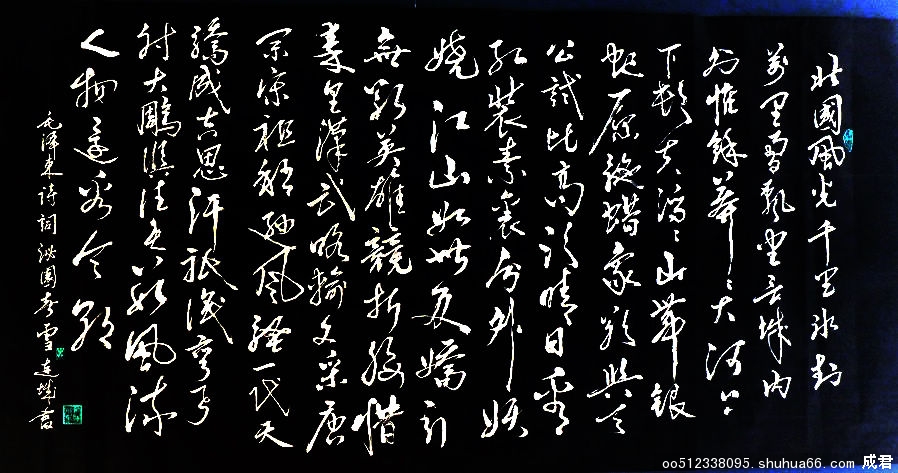 北國風光千里冰封
萬里雪飄望長城內
外惟餘莽莽大河上
下頓失滔滔山舞銀
蛇原馳蠟象欲與天
公試比高須晴日看
紅裝素裹分外妖
嬈江山如此多嬌引
無數英雄競折腰惜
秦皇漢武略輸文采唐
宗宋祖稍遜風騷一代天
驕成吉思汗祗識彎弓
射大鵰俱往矣數風流
人物還看今朝
毛澤東詩詞沁園春雪 書
oo512338095.shuhua66.com 成君